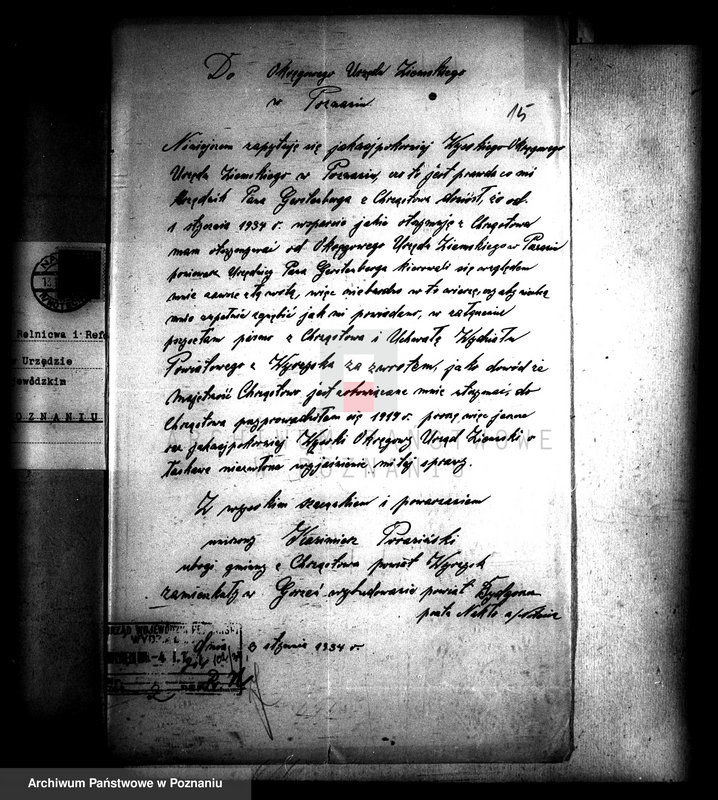 Do Okręgowego Urzędu Ziemskiego
w Poznaniu
15
Niniejszem zapytuję się jaknajpokorniej Wysokiego Okręgowego
Urzędu Ziemskiego w Poznaniu, czy to jest prawda co mi
Urzędnik Pana Gerstenberga z Chrząstowa doniósł, że od
1 stycznia 1934 r. wsparcie jakie otrzymuję z Chrząstowa
mam otrzymywać od Okręgowego Urzędu Ziemskiego w Poznaniu
ponieważ Urzędnicy Pana Gerstenberga kierowali się względem
mnie zawsze złą wolą, więc nie bardzo w to wierzę,
jak mi powiedziano, w załączeniu
przesyłam pismo z Chrząstowa i Uchwałę Wydziału
Powiatowego z Wyrzyska za zwrotem, jako dowód że
majętność Chrząstowo jest zobowiązane mnie utrzymać, do
Chrząstowa przyprowadziłem się 1919 r. proszę więc jeszcze
raz jaknajpokorniej Wysoki Okręgowy Urząd Ziemski o
łaskawe niezwłoczne wyjaśnienie mi tej sprawy.
Z wysokim szacunkiem i poważaniem
uniżony Kazimierz
ubogi gminny z Chrząstowa powiat Wyrzysk
zamieszkały w wybudowanie powiat Bydgoszcz
poczta Nakło n/Notecią
dnia 3 stycznia 1934 r.
Rolnictwa i Ref
w Urzędzie
ewódzkim
OZNANIU
URZĄD WOJEWÓDZKI
2
ARCHIWUM PAŃSTWOWE
W POZNANIU
Archiwum Państwowe w Poznaniu